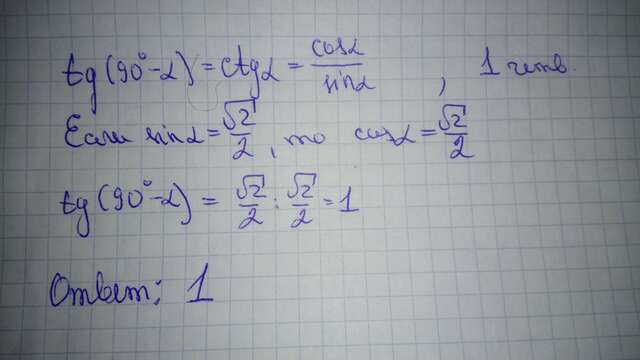 tg(90°-α) = ctgα = cosα/sinα, 1 четв.
Если sinα = √2/2, то cosα = √2/2
tg(90°-α) = √2/2 : √2/2 = 1
Ответ: 1